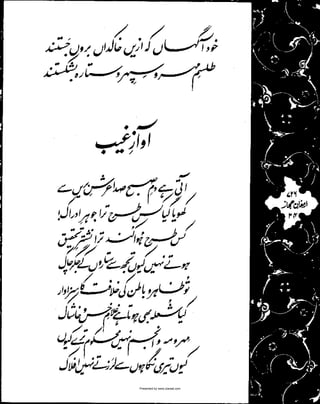 خود آگہاں کہ ازیں خاکداں بروں جستند
طلسمِ مہر و سپہر و ستارہ بشکستند
آوازِ غیب
آتی ہے دمِ صبح صدا عرشِ بریں سے
کھویا گیا کس طرح ترا جوہرِ ادراک!
کس طرح ہوا کند ترا نشترِ تحقیق
ہوتے نہیں کیوں تجھ سے ستاروں کے جگر چاک
تو ظاہر و باطن کی خلافت کا سزاوار
کیا شعلہ بھی ہوتا ہے غلامِ خس و خاشاک
مہر و مہ و انجم نہیں محکوم ترے کیوں
کیوں تیری نگاہوں سے لرزتے نہیں افلاک
ارمغانِ حجاز